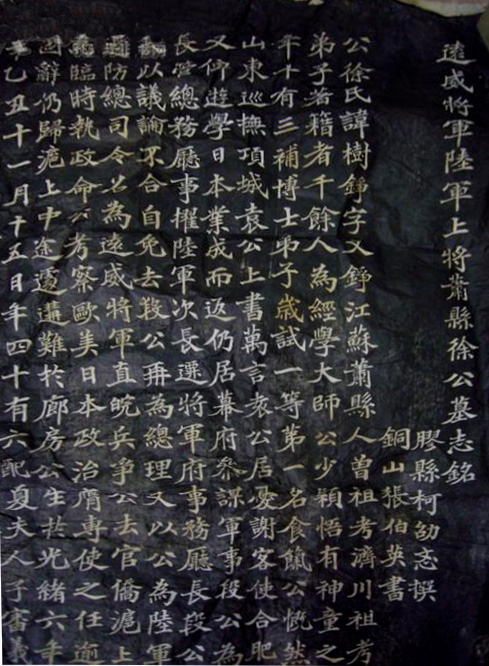 遠威將軍陸軍上將蕭縣徐公墓志銘
膠縣柯劭忞撰
銅山張伯英書
公徐氏諱樹錚字又錚江蘇蕭縣人曾祖考濟川祖考
弟子著籍者千餘人為經學大師公少穎悟有神童之
年十有三補博士弟子歲試一等第一名食餼公慨然
山東巡撫項城袁公上書萬言袁公居憂謝客使合肥
又仰遊學日本業成而返仍居幕府參謀軍事段公為
長管總務廳事擢陸軍次長選將軍府事務廳長段公
以議論不合自免去段公再為總理又以公為陸軍
邊防總司令名為遠威將軍直皖兵爭公去官僑滬上
臨時執政命公考察歐美日本政治膺專使之任逾
固辭仍歸滬上中途遽遘難於廊房公生於光緒六年
年乙丑十一月十五日年四十有六配夏夫人子審義